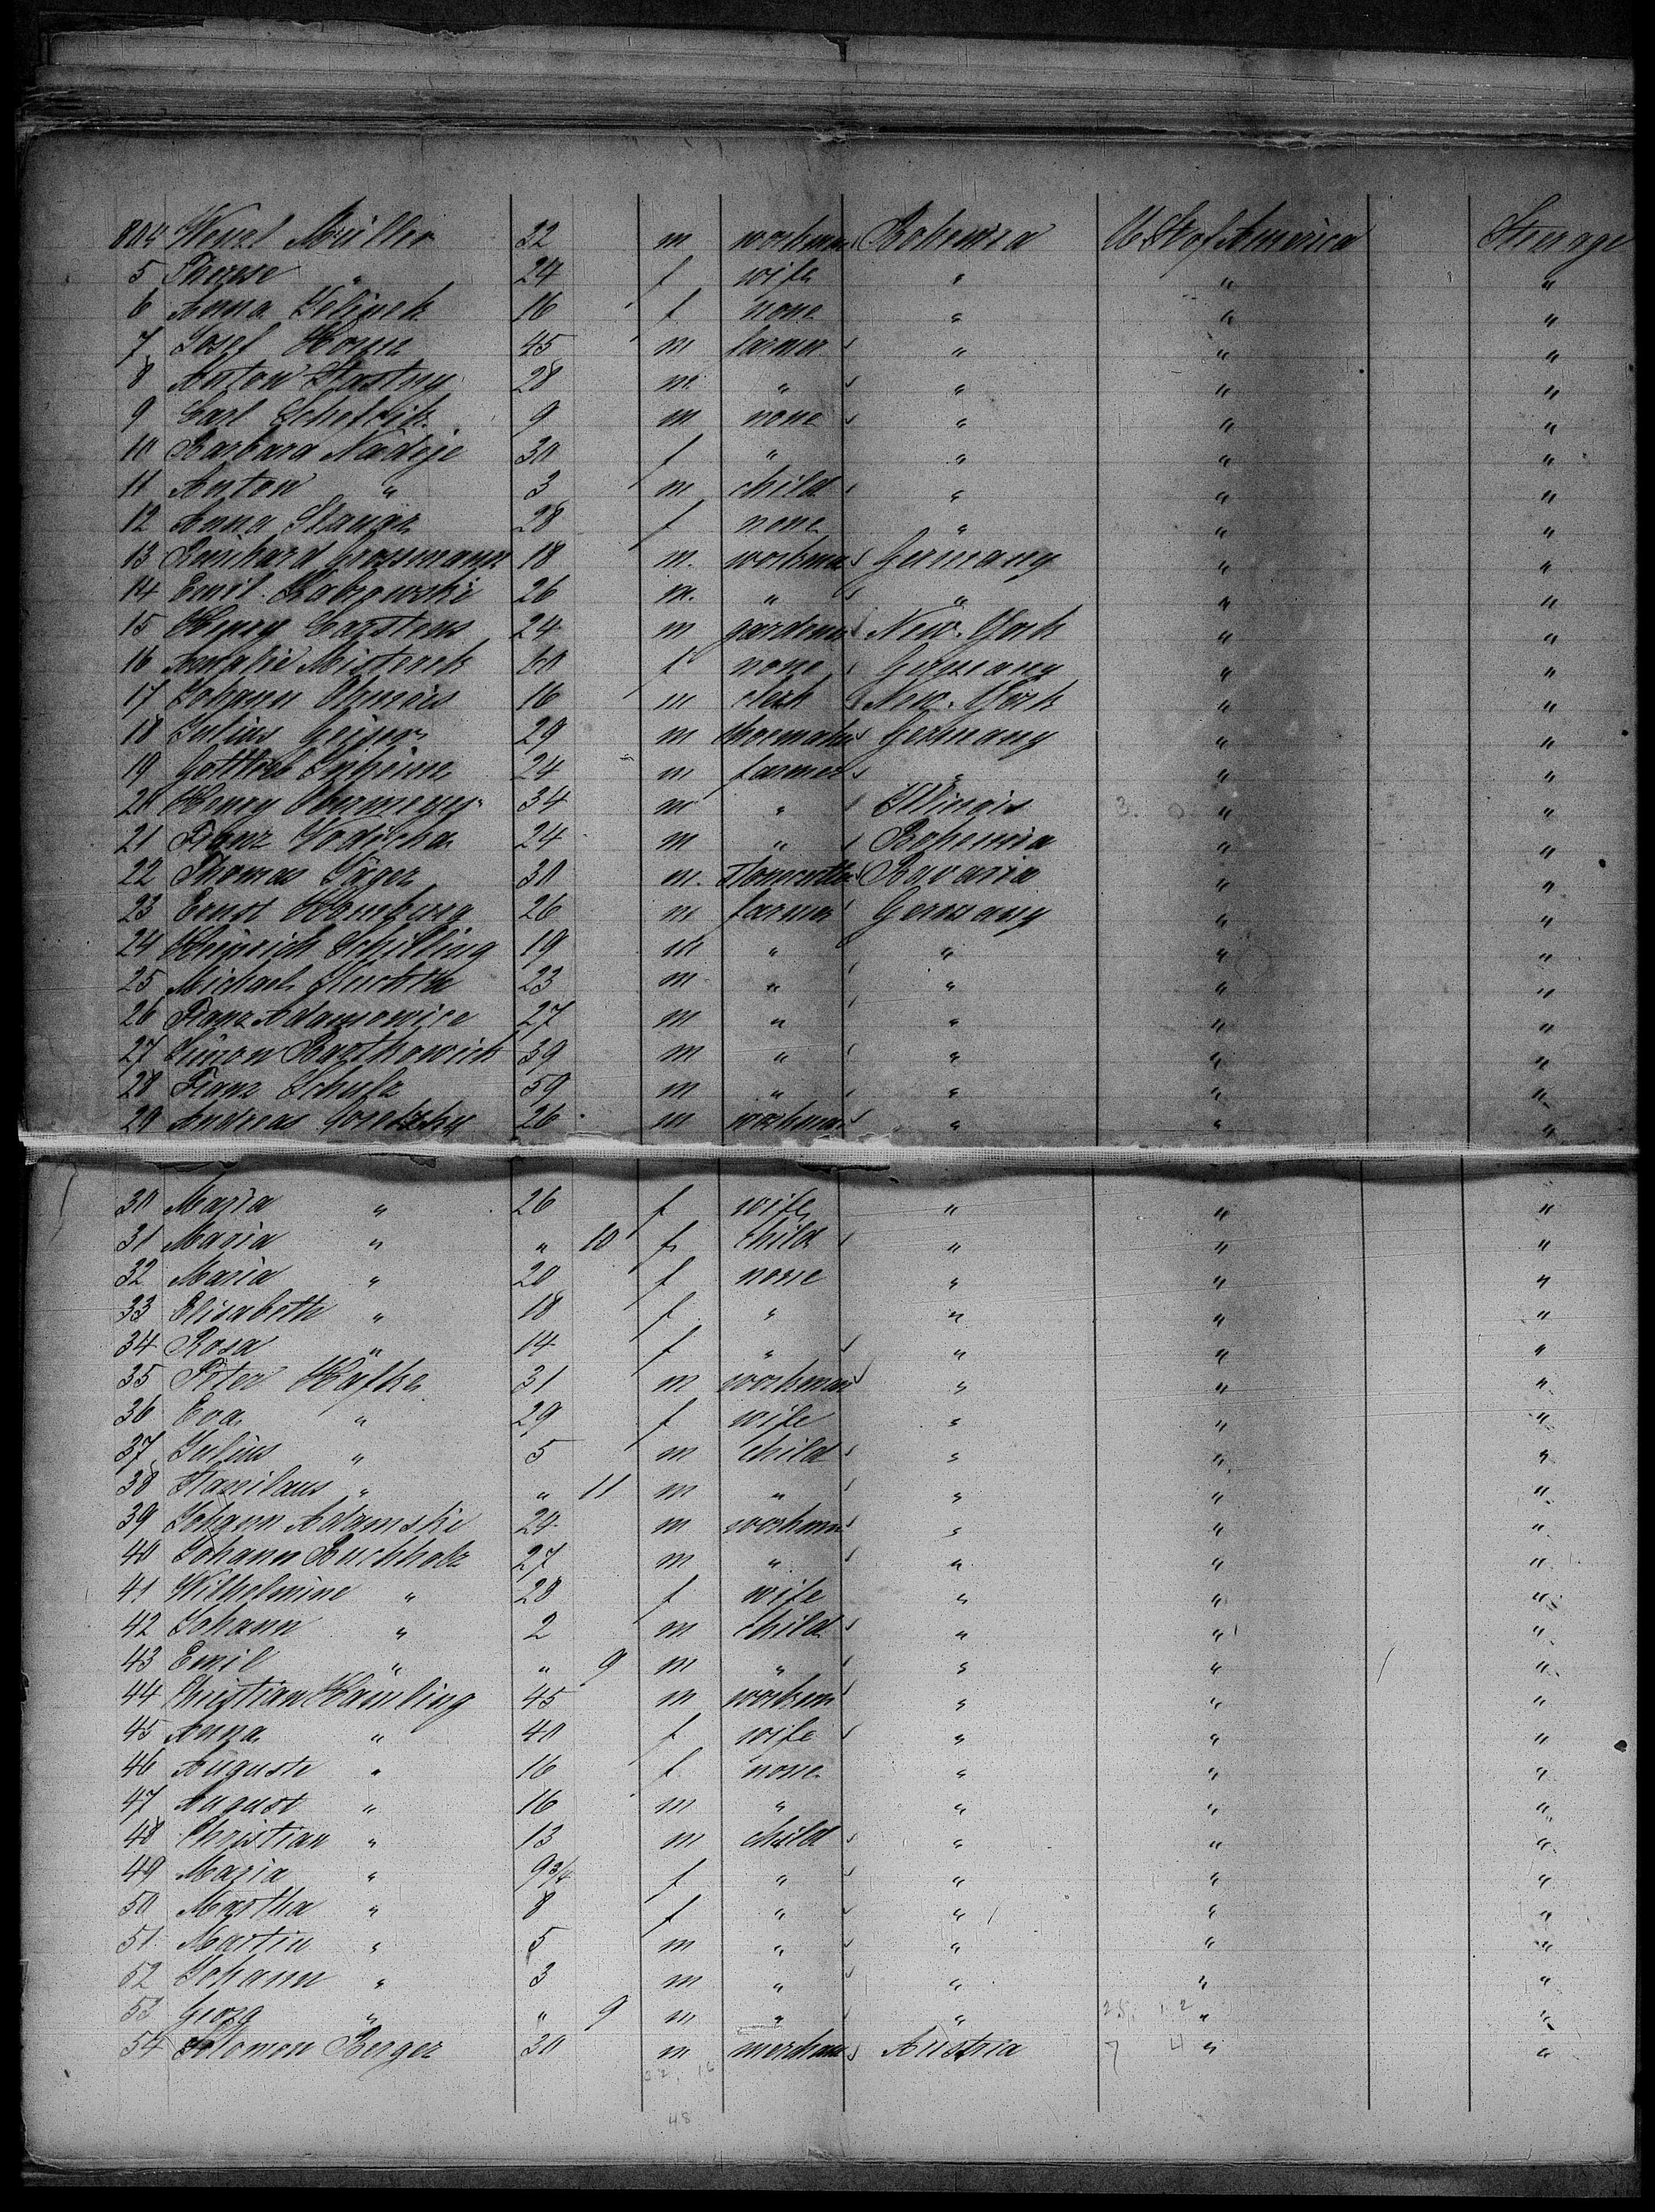 804 Wenzl Müller 22 m workman Bohemia U. St. of America Steerage
5 Therese " 24 f wife " " "
6 Anna Jelinek 16 f none " " "
7 Josef 45 m farmer " " "
8 Anton Stastny 28 m " " " "
9 Carl 9 m none " " "
10 Barbara Nadeje 30 f " " " "
11 Anton " 3 m child " " "
12 Anna 28 f none " " "
13 Grossmann 18 m. workman Germany " "
14 Emil 26 m. " " " "
15 Henry Carstens 24 m gardener New-York " "
16 60 f none Germany " "
17 Johann 16 m clerk New-York " "
18 Julius Geiser 29 m Germany " "
19 Gottlieb 24 m farmer " " "
20 Henry 34 m " Illinois " "
21 Franz Vodicka 24 m " Bohemia " "
22 Thomas Jäger 30 m. Bavaria " "
23 Ernst Homburg 26 m farmer Germany " "
24 Heinrich Schilling 19 m " " " "
25 Michael 23 m " " " "
26 Franz Adamowice 27 m " " " "
27 Simon Barthowich 39 m " " " "
28 Franz Schulz 59 m " " " "
29 Andreas 26 m workman " " "
30 Maria " 26 f wife " " "
31 Maria " " 10 f child " " "
32 Maria " 20 f none " " "
33 Elisabeth " 18 f " " " "
34 Rosa " 14 f " " " "
35 Peter Hafke 31 m workman " " "
36 Eva " 29 f wife " " "
37 Julius " 5 m child " " "
38 Stanilaus " " 11 m " " " "
39 Johann Adamski 24 m workman " " "
40 Johann Buchholz 27 m " " " "
41 Wilhelmine " 28 f wife " " "
42 Johann " 2 m child " " "
43 Emil " " 9 m " " " "
44 Christian Hamling 45 m workman " " "
45 Anna " 40 f wife " " "
46 Auguste " 16 f none " " "
47 August " 16 m " " " "
48 Christian " 13 m child " " "
49 Maria " 9 3/4 f " " " "
50 Martha " 8 f " " " "
51 Martin " 5 m " " " "
52 Johann " 3 m " " " "
53 Georg " " 9 m " " " "
54 Solomon Berger 30 m merchant Austria " "
48